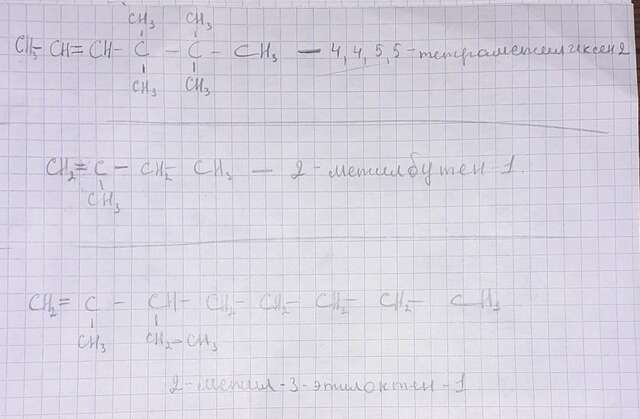 CH₃ CH₃
CH₃-CH=CH-C-C-CH₃ — 4,4,5,5-тетраметилгексен2
CH₃ CH₃
CH₂=C-CH₂-CH₃ — 2-метилбутен-1.
CH₃
CH₂=C-CH-CH₂-CH₂-CH₂-CH₂-CH₃
CH₃ CH₂-CH₃
2-метил-3-этилоктен-1